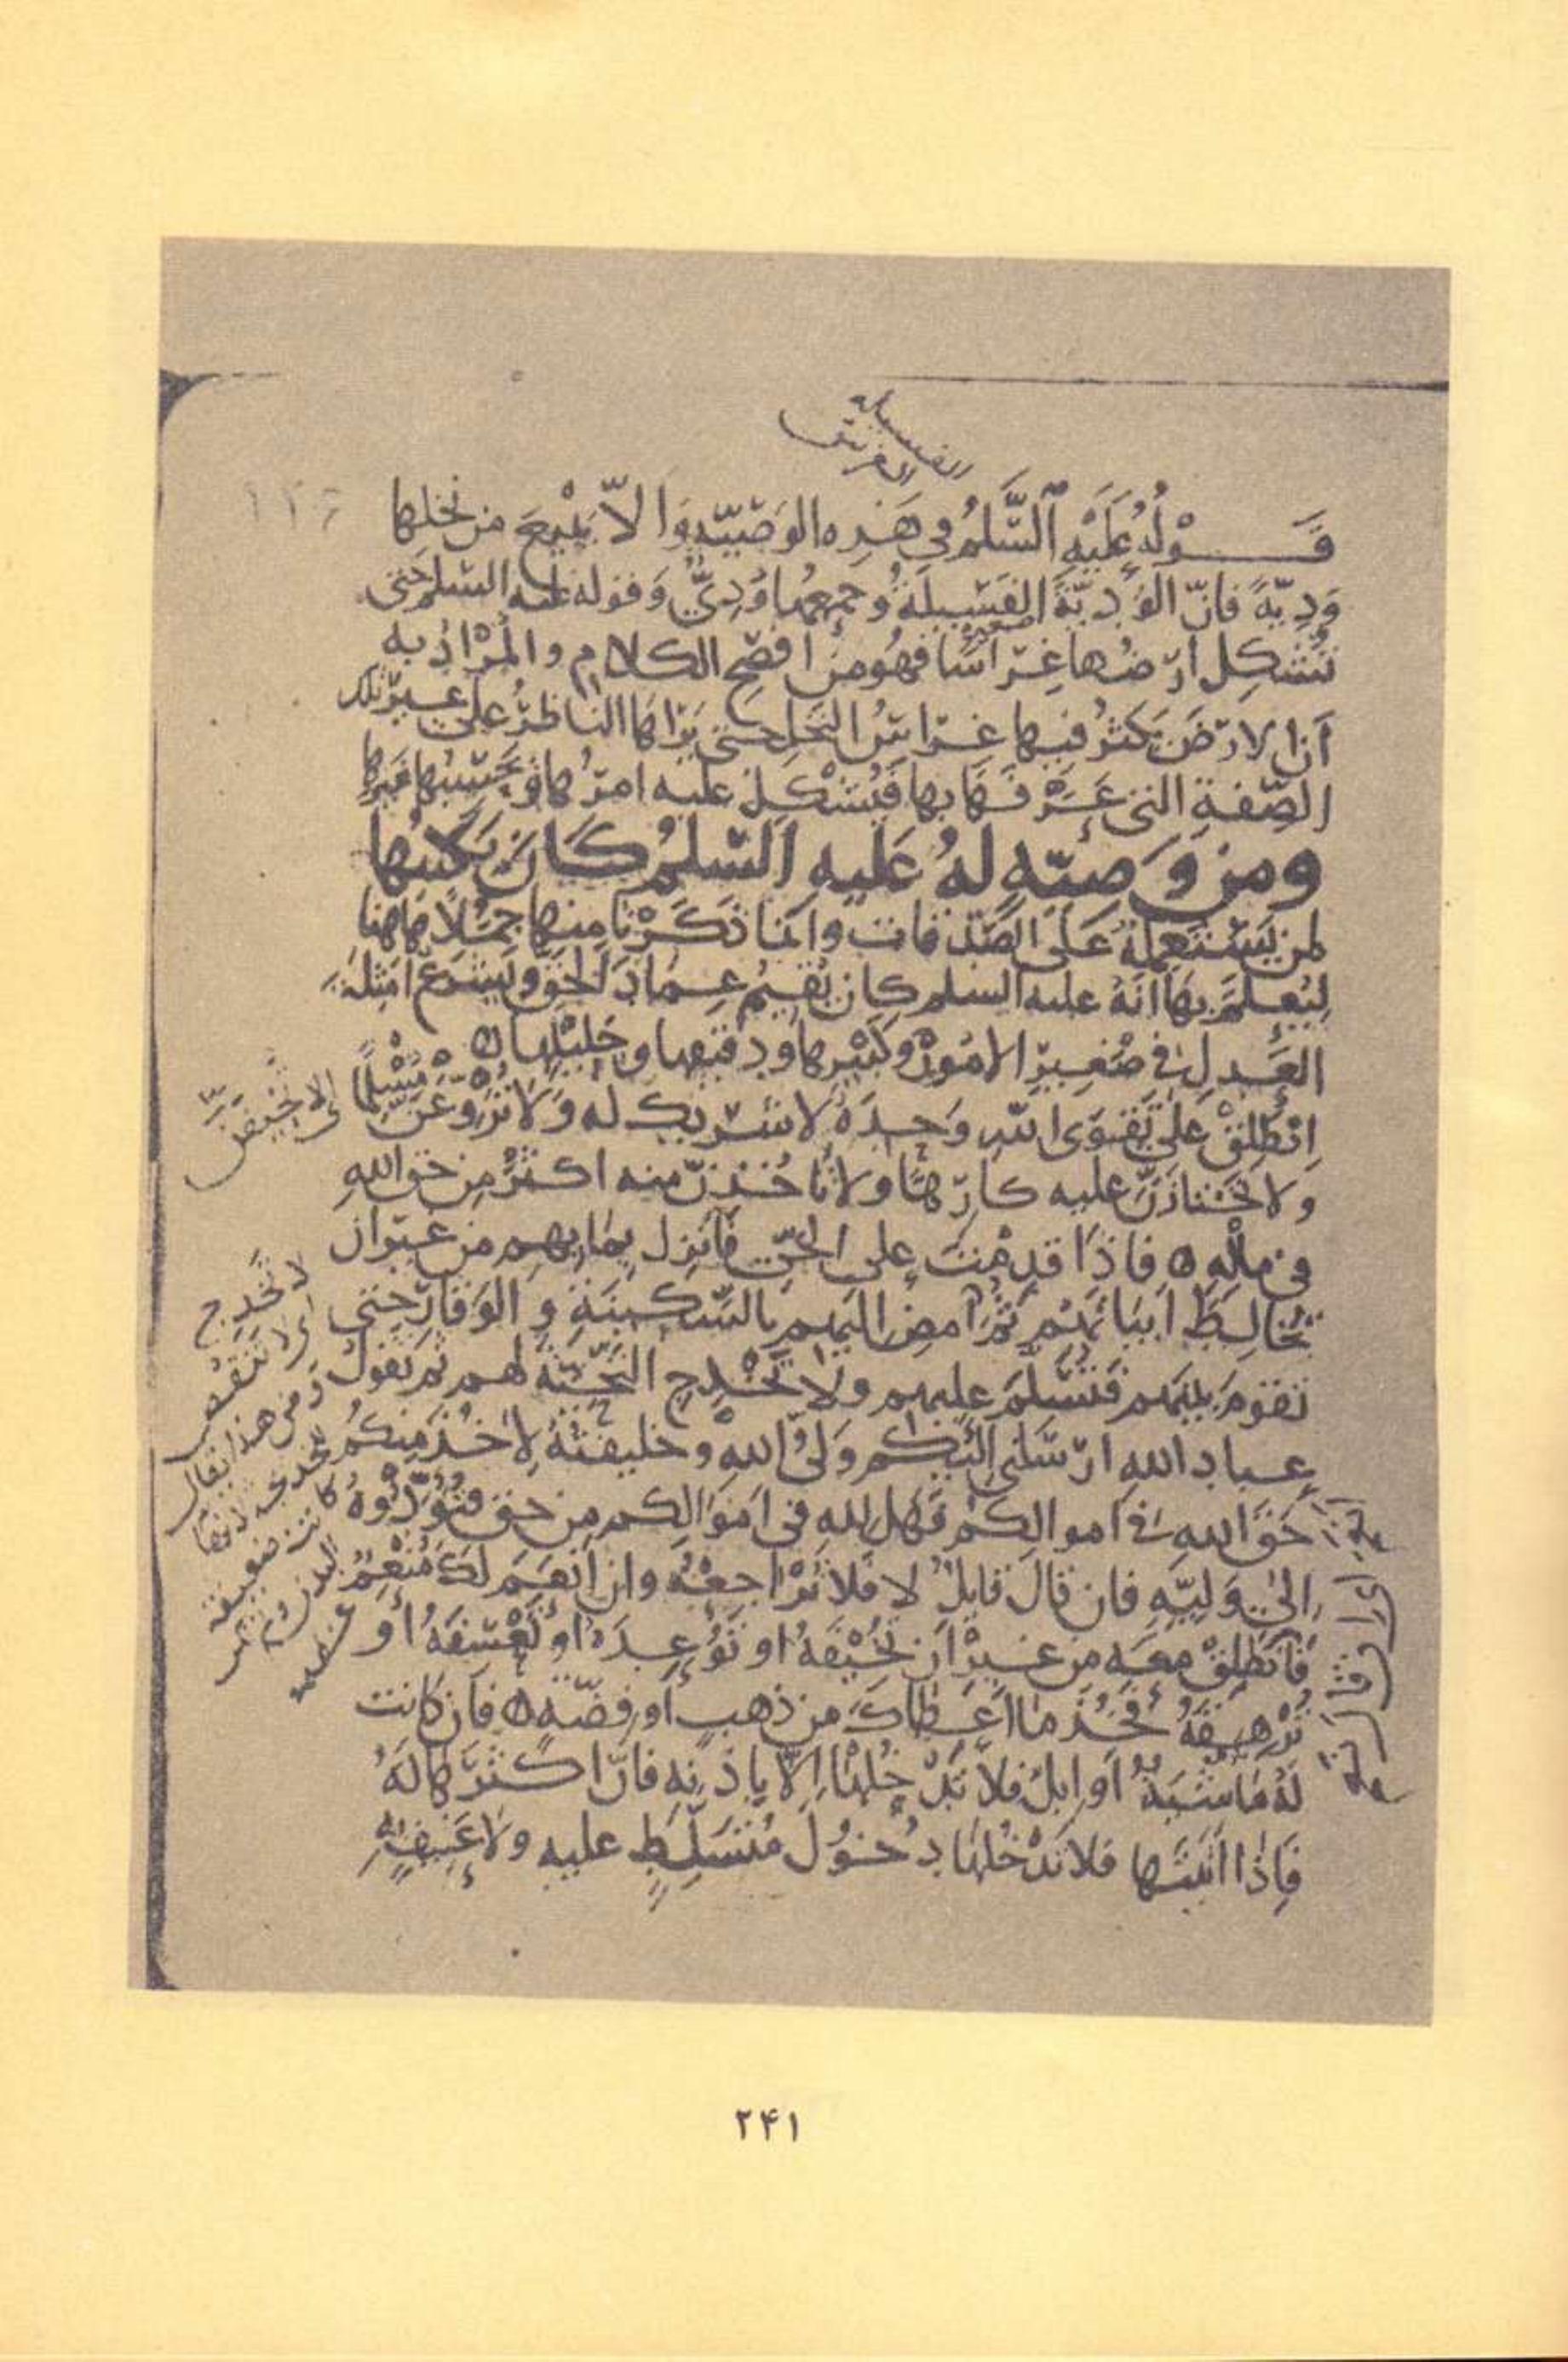 الفسيله
الغريس
١٢٦
قَوْلُهُ عَلَيْهِ ٱلسَّلَمُ في هَذِهِ الوَصِيّةِ وَالاّ يَبْيعَ من نخلها
وَدِيّةً فانّ الوَدِيّةَ الفَسِيلَةُ وجمعُها وَدِيٌّ وَقوله عليه السلم حَتى
تُشْكِلَ ارْضُها غِرَاسًا فهُو من افصَحِ الكلام والمُرْادُ به
أنّ الارْضَ يَكثُرُ فيها غِرَاسُ النخلِ حتى يَرَاهَا الناظرُ على غيرِ تلك
الصّفةِ التى عَرَفَهَا بها فَيُشْكِلُ عليه امرُها وَيَحسِبُها غَيرَها
ومن وَصيّةٍ لهُ عَليهِ السّلمُ كَانَ يَكتبُها
لمن يَسْتَعمِلُهُ عَلَى الصَدَقات وانما ذَكَرْنا منها جُمَلاً هاهنا
ليُعلَمَ بهَا انّهُ عليه السلم كان يُقيمُ عِمَادَ الحَقِّ ويَشرَعُ امثلَةَ
العَدلِ في صَغيرِ الامُورِ وكَبيرِها ودقيقها وجَليْلِها ه
اِنْطَلِقْ على تَقوَى اللهِ وَحدَهُ لاشريكَ له وَلَا تُرَوّعَنّ مُسْلِمًا
ولا تَجْتَازَنّ عليه كارِهًا ولا تَأخُذَنّ منه اكثَرَ مِن حَقِّ اللهِ
في مالهِ ه فاذَا قدِمْتَ على الحَيِّ فانزِل بمائِهِم من غيرِ ان
تُخالِطَ ابيَاتَهُم ثمّ امضِ اليهِم بالسَّكينَةِ والوَقارِ حتى
تقومَ بينَهم فتُسَلِّمَ عليهم ولا تُخْدِجِ التّحِيّةَ لهم ثم تقولُ
عِبادَ اللهِ ارْسَلَني اليكم وَليُّ اللهِ وخليفتُهُ لِآخُذَ مِنكُم
حَقَّ اللهِ في اموالِكُم فَهَل للهِ في امَوالِكم من حَقٍّ فتُؤَدّوُهُ
الى وَليِّهِ فان قالَ قايلٌ لا فلا تُرَاجِعْهُ وان انعَمَ لَكَ مُنْعِمٌ
فَانطَلِقْ مَعَه من غيرِ ان تُخيْفَهُ او تُوعِدَهُ او تَعْسِفَهُ أو
تُرْهِقَهُ فخُذ ما اعطاكَ من ذهبٍ او فضّةٍ ه فان كانت
لَهُ مَاشيَةٌ او ابلٌ فلا تَدْخُلْها الّا باذنِه فانّ اكثَرَها لَهُ
فَاِذا اتيتَها فلا تَدْخُلْها دُخُولَ مُتَسَلِّطٍ عليه ولا عَنيفٍ بِهِ
لا تخدج
اى لا تنقص
ومن هذا يقال